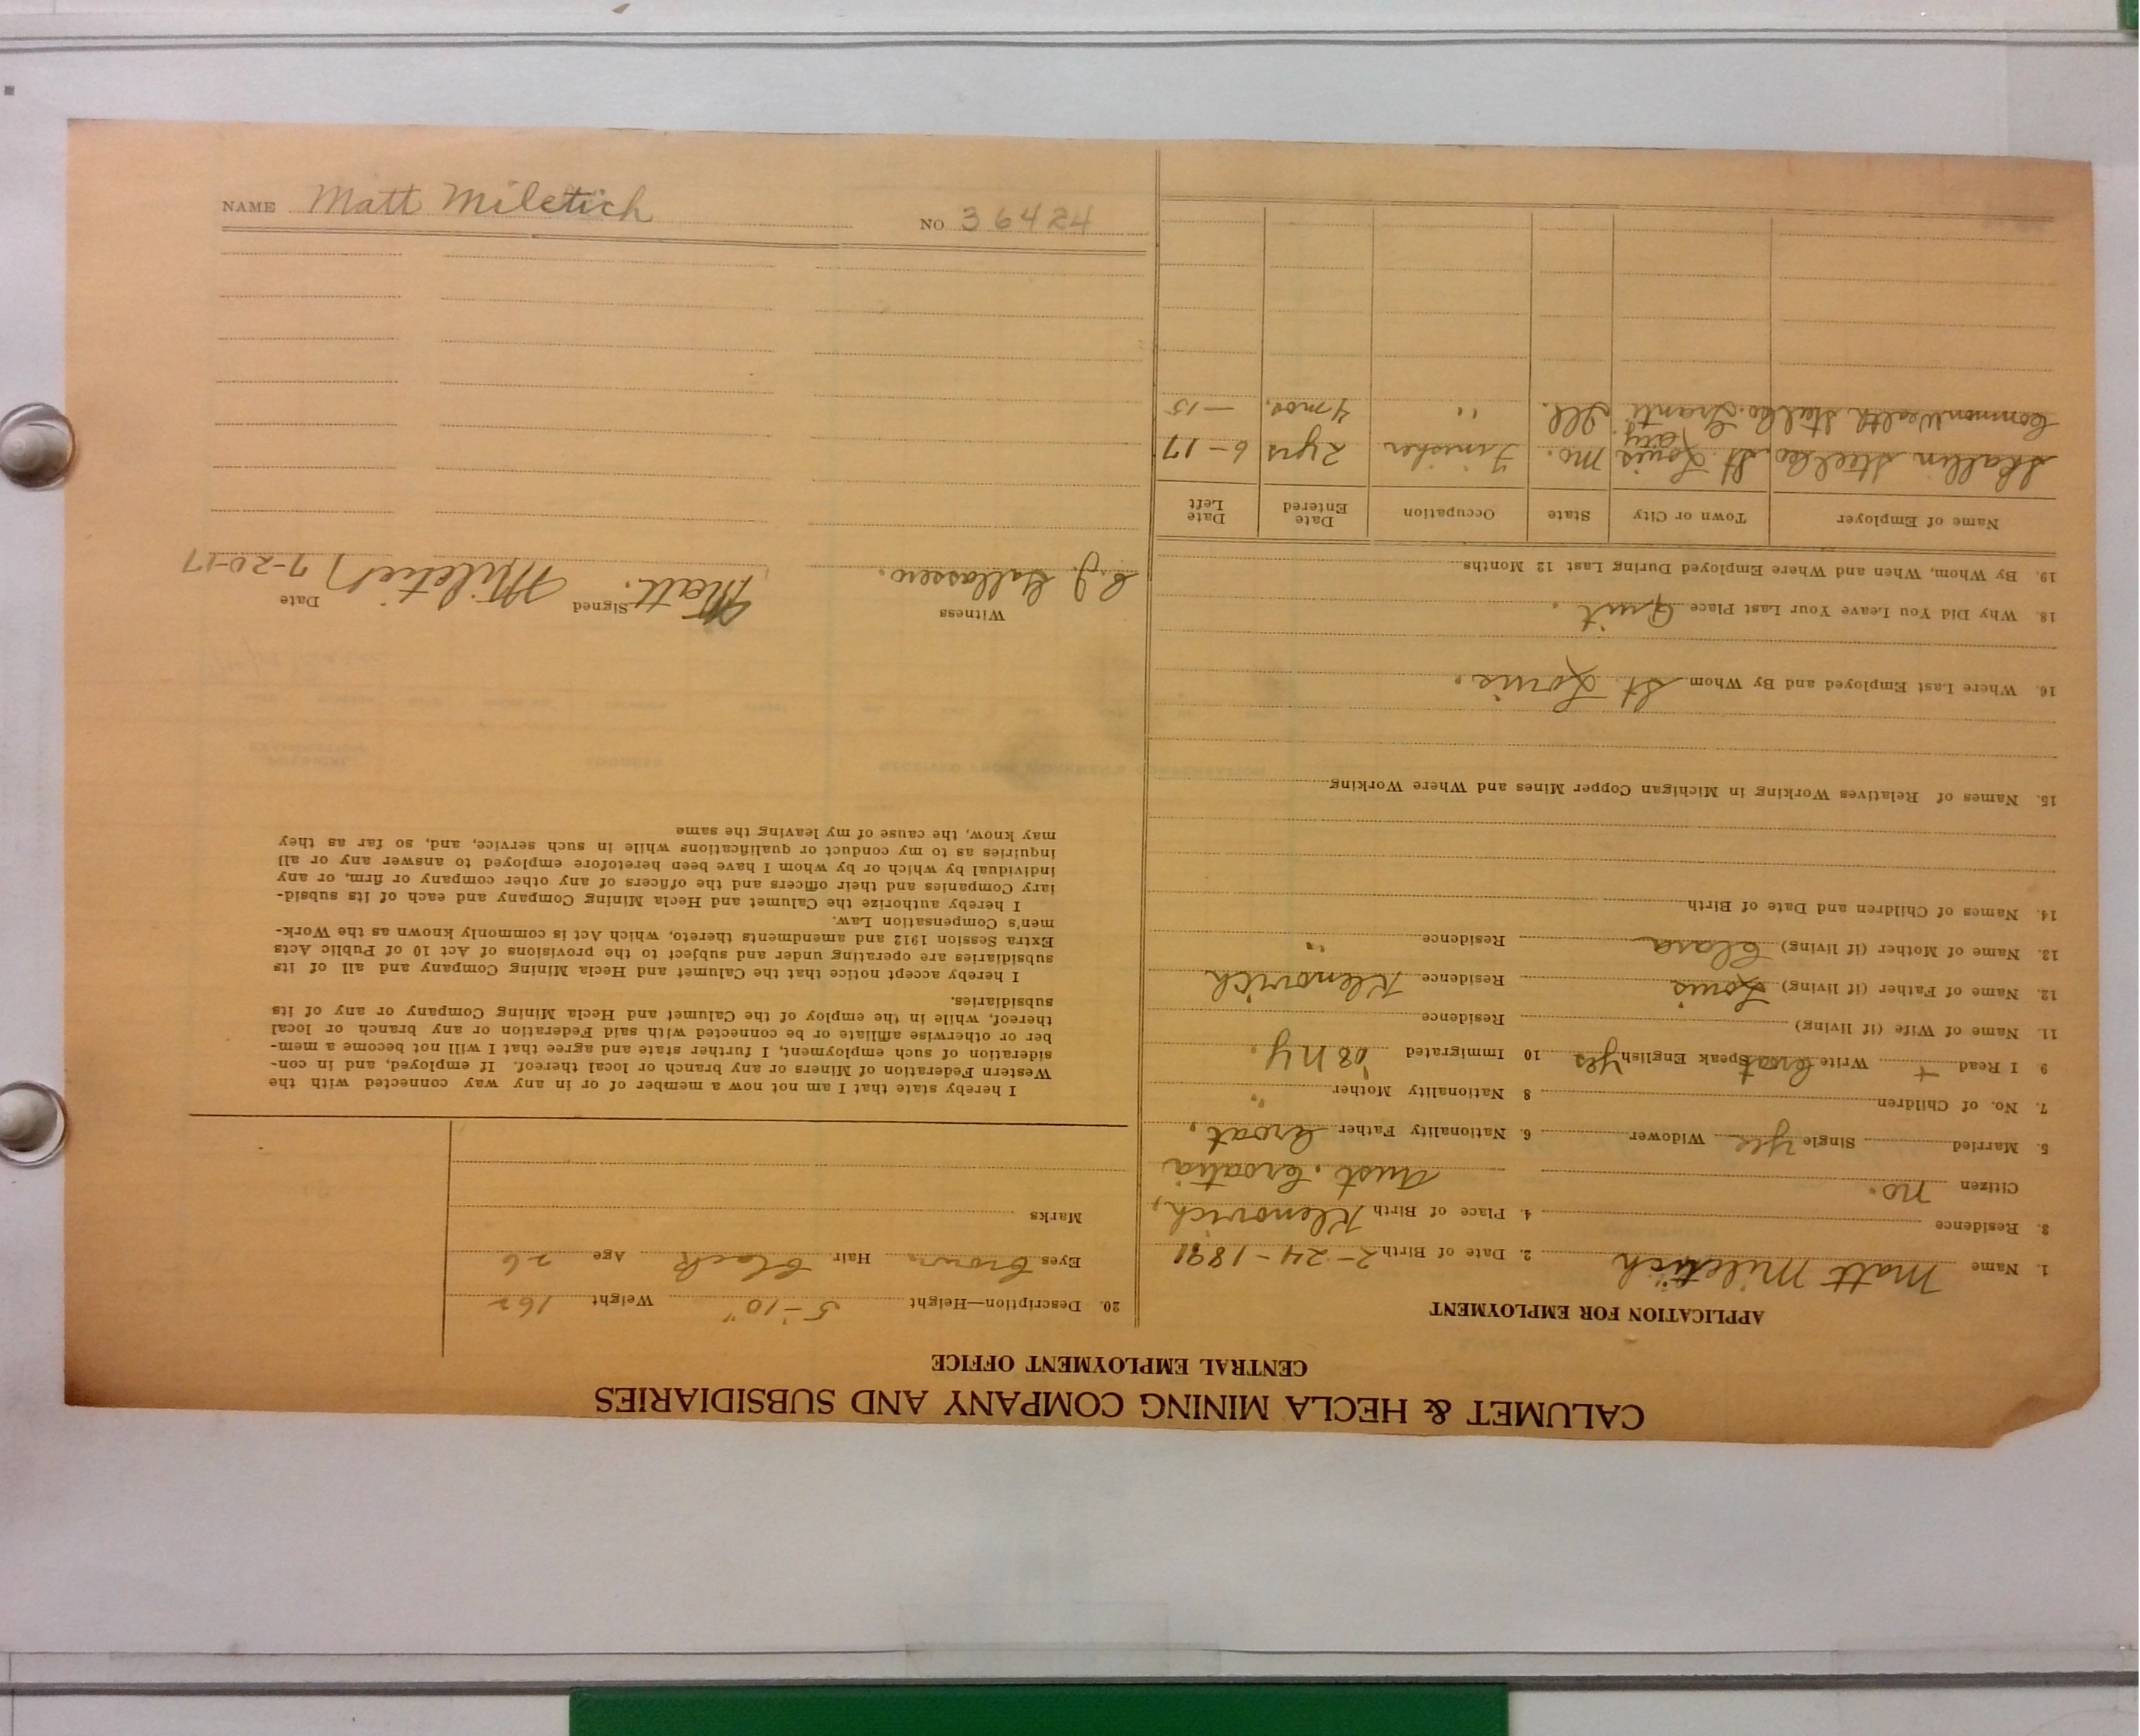 CALUMET & HECLA MINING COMPANY AND SUBSIDIARIES
CENTRAL EMPLOYMENT OFFICE
APPLICATION FOR EMPLOYMENT
1. Name Matt Miletich 2. Date of Birth 2-24-1891
3. Residence 4. Place of Birth Klenovich,
Citizen no. Aust. Croatia
5. Married Single Yes Widower 6. Nationality Father Croat.
7. No. of Children 8 Nationality Mother "
9 I Read + Write Croat Speak English Yes 10 Immigrated '08 N.Y.
11. Name of Wife (if living) Residence
12. Name of Father (if living) Louis Residence Klenovich
13. Name of Mother (if living) Clara Residence "
14. Names of Children and Date of Birth
15. Names of Relatives Working in Michigan Copper Mines and Where Working
16. Where Last Employed and By Whom St. Louis.
18. Why Did You Leave Your Last Place Quit.
19. By Whom, When and Where Employed During Last 12 Months
Name of Employer Town or City State Occupation Date Entered Date Left
Steel Co. St. Louis Mo. Finisher 2 yrs 6-17
CommonWealth Steel Co. Granti City. Ill. " 4 mos. -15
20. Description—Height 5'-10" Weight 162
Eyes Brown Hair Black Age 26
Marks
I hereby state that I am not now a member of or in any way connected with the
Western Federation of Miners or any branch or local thereof. If employed, and in con-
sideration of such employment, I further state and agree that I will not become a mem-
ber or otherwise affiliate or be connected with said Federation or any branch or local
thereof, while in the employ of the Calumet and Hecla Mining Company or any of its
subsidiaries.
I hereby accept notice that the Calumet and Hecla Mining Company and all of its
subsidiaries are operating under and subject to the provisions of Act 10 of Public Acts
Extra Session 1912 and amendments thereto, which Act is commonly known as the Work-
men's Compensation Law.
I hereby authorize the Calumet and Hecla Mining Company and each of its subsid-
iary Companies and their officers and the officers of any other company or firm, or any
individual by which or by whom I have been heretofore employed to answer any or all
inquiries as to my conduct or qualifications while in such service, and, so far as they
may know, the cause of my leaving the same
Witness Signed Date
C. J. Matt. Miletich 7-20-17
NAME Matt Miletich NO 36424